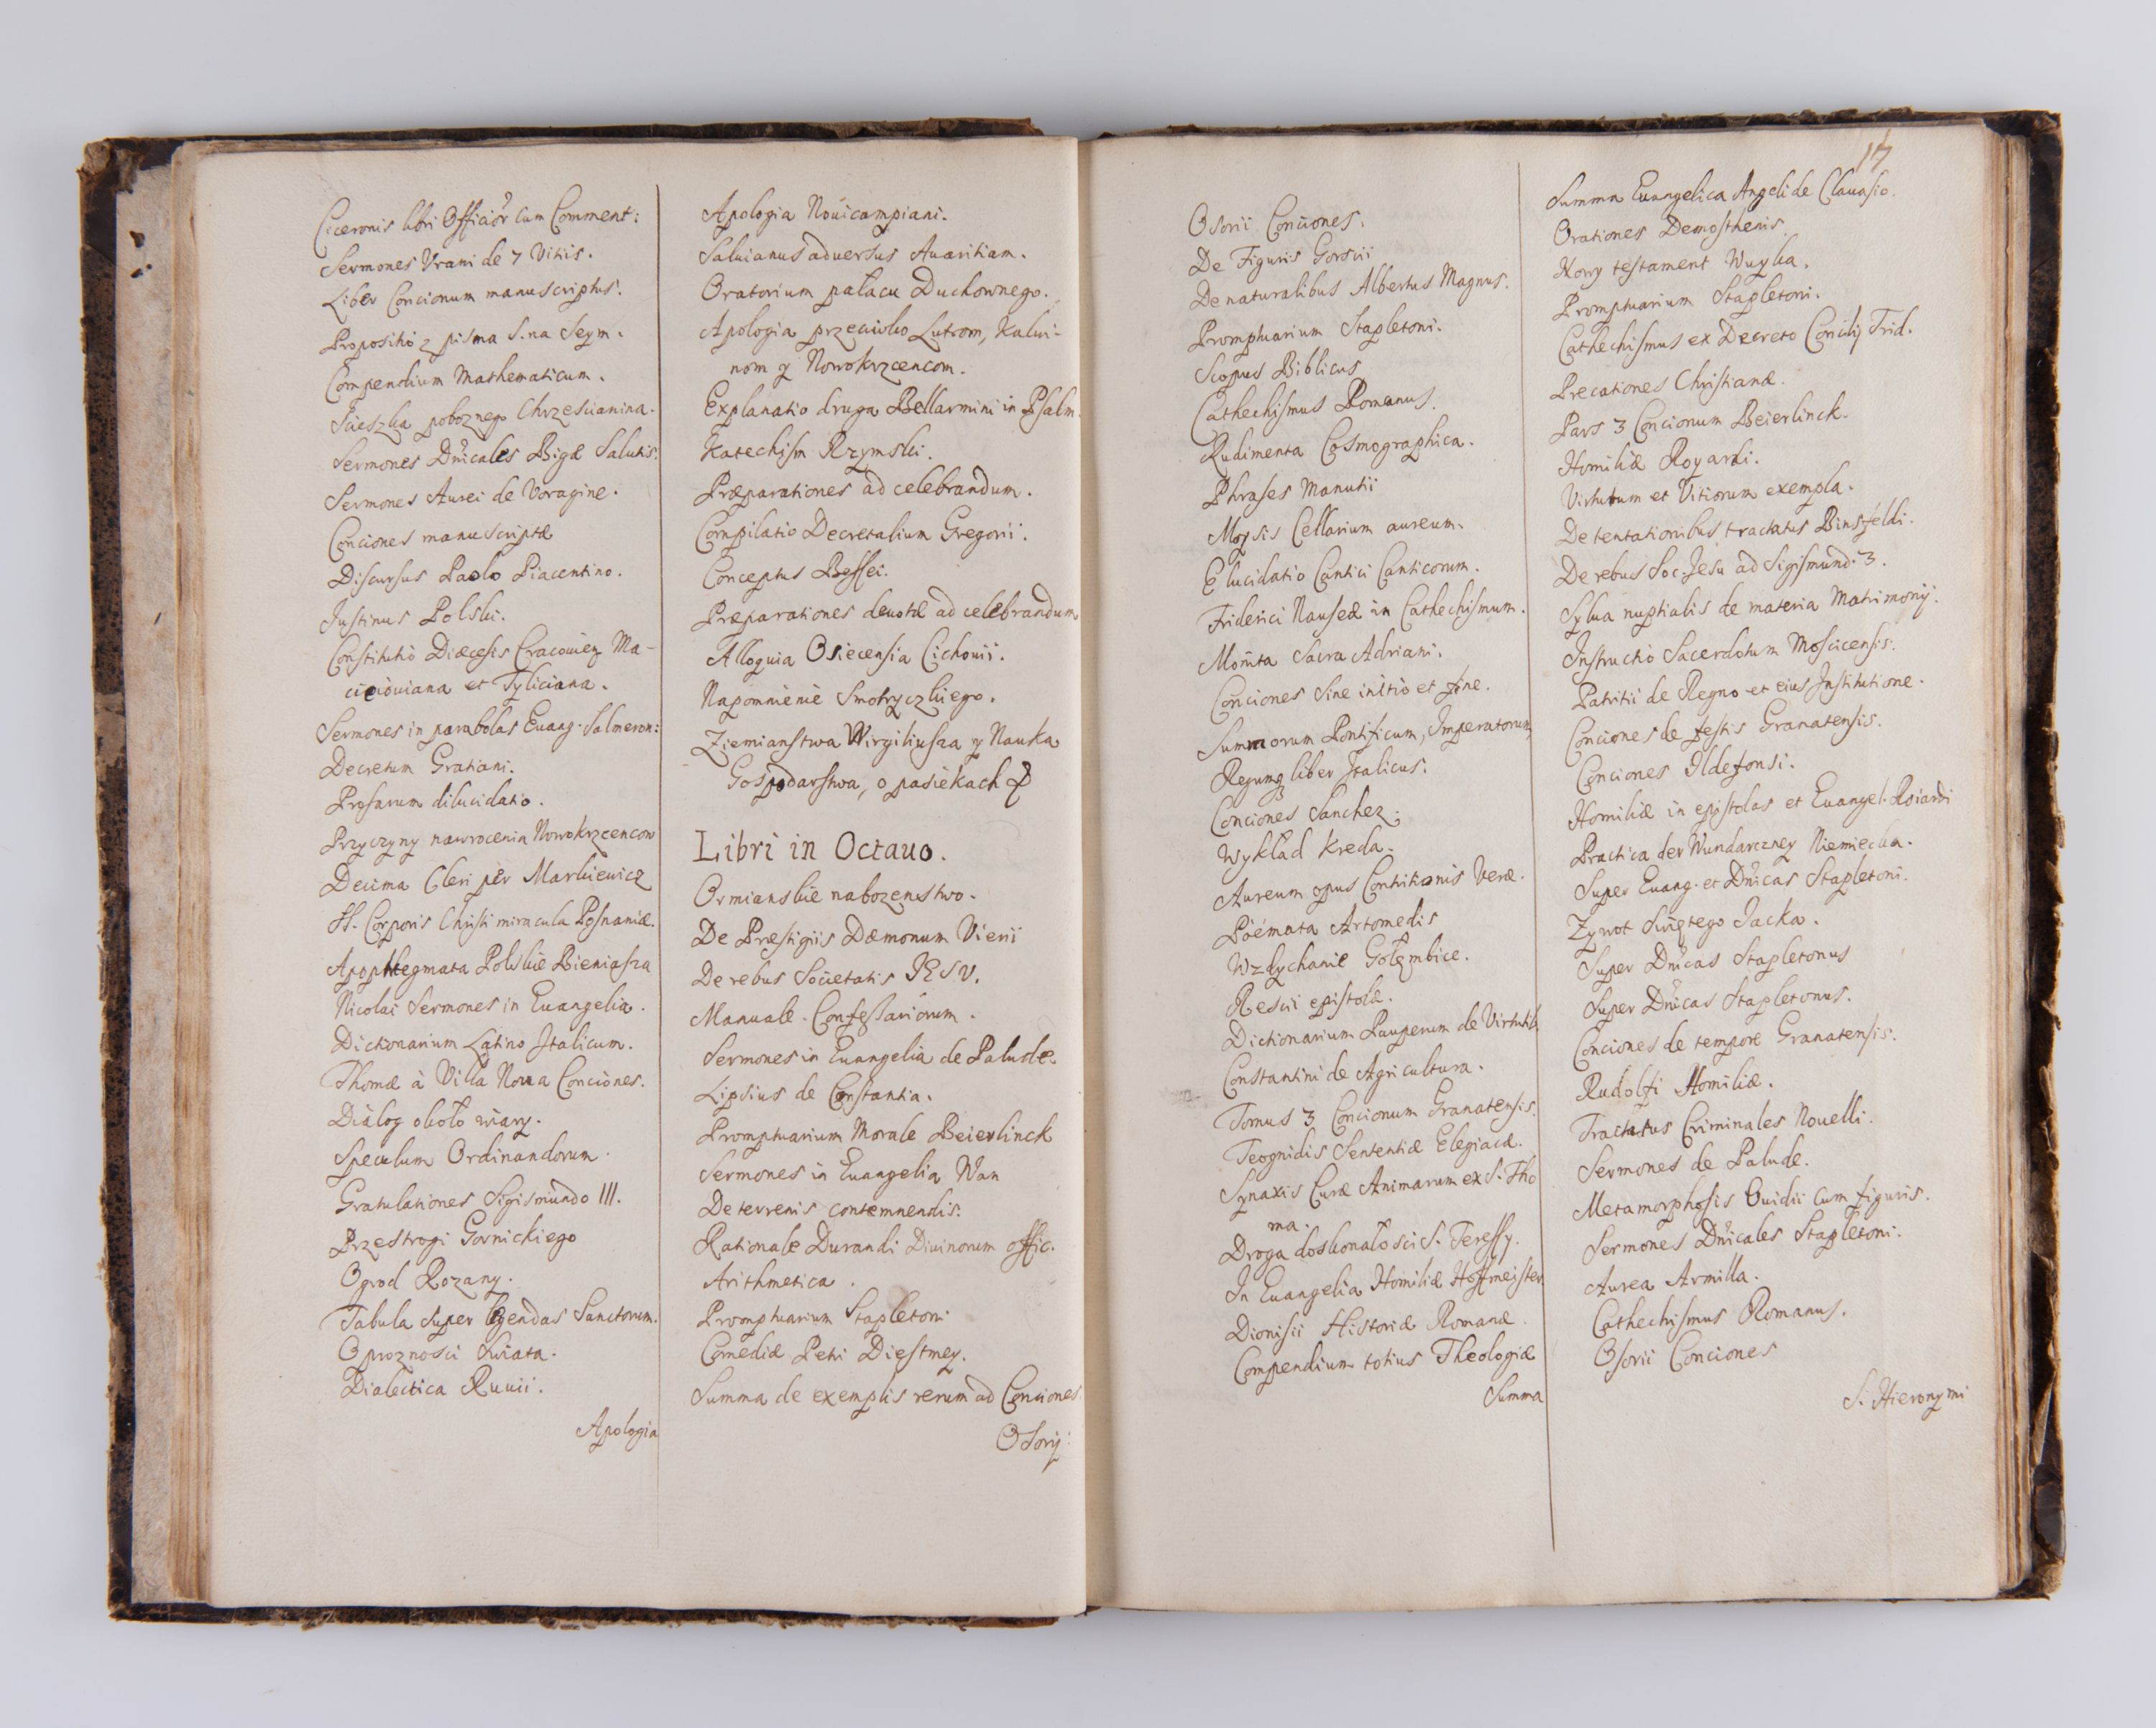 Ciceronis libri Officiōr cum Comment:
Sermones Vrani de 7 Vitiis.
Liber Concionum manuscriptus.
Propositio z pisma S. na Seym.
Compendium Mathematicum.
Scieszka poboznego Chrzescianina.
Sermones Dn̄icales Bigæ Salutis.
Sermones Aurei de Voragine.
Conciones manuscriptæ
Discursus Paolo Piacentino.
Justinus Polski.
Constitutio Diæcesis Cracouien Ma-
cieiouiana et Tyliciana.
Sermones in parabolas Euang. Salmeron:
Decretum Gratiani.
Prosarum dilucidatio.
Przyczyny nawrocenia Nowokrzcencow
Decima Cleri per Markiewicz
SS. Corporis Christi miracula Posnaniæ.
Apophtegmata Polskie Bieniasza
Nicolai Sermones in Euangelia.
Dictionarium Latino Italicum.
Thomæ à Villa Noua Conciones.
Dialog około wiary.
Speculum Ordinandorum.
Gratulationes Sigismundo III.
Przestrogi Gornickiego
Ogrod Rozany.
Tabula super legendas Sanctorum.
O proznosci Swiata.
Dialectica Ruuii.
Apologia
Apologia Nouicampiani.
Saluianus aduersus Auaritiam.
Oratorium pałacu Duchownego.
Apologia przeciwko Lutrom, Kalwi-
nom y Nowokrzcencom.
Explanatio druga Bellarmini in Psalm.
Katechism Rzymski.
Præparationes ad celebrandum.
Compilatio Decretalium Gregorii.
Conceptus Bessei.
Præparationes deuotæ ad celebrandum
Alloquia Osiecensia Cichouii.
Napomnienie Smotryczkiego.
Ziemianstwa Wirgiliusza y Nauka
Gospodarstwa, o pasiekach &
Libri in Octauo.
Ormianskie nabozenstwo.
De Præstigiis Dæmonum Vierii
De rebus Societatis IESV.
Manuale Confessariorum.
Sermones in Euangelia de Palude.
Lipsius de Constantia.
Promptuarium Morale Beierlinck
Sermones in Euangelia Wan
De terrenis contemnendis.
Rationale Durandi Diuinorum offic.
Arithmetica.
Promptuarium Stapletoni
Comediæ Petri Diestmey.
Summa de exemplis rerum ad Conciones.
Osorij
17
Osorii Conciones.
De Figuris Gorscii
De naturalibus Albertus Magnus.
Promptuarium Stapletoni.
Scopus Biblicus
Cathechismus Romanus.
Rudimenta Cosmographica.
Phrases Manutii
Moysis Cellarium aureum.
Elucidatio Cantici Canticorum.
Friderici Nauseæ in Cathechismum.
Monita Sacra Adriani.
Conciones sine initio et fine.
Summorum Pontificum, Imperatorum,
Regumq liber Italicus.
Conciones Sanchez.
Wykład Kreda.
Aureum opus Contritionis Veræ.
Poëmata Artomedis
Wzdychanie Gołembice.
Rescii epistolæ.
Dictionarium Pauperum de Virtutib.
Constantini de Agricultura.
Tomus 3 Concionum Granatensis.
Teognidis Sententiæ Elegiacæ.
Synaxis Curæ Animarum ex S. Tho
ma.
Droga doskonałosci S. Teressy.
In Euangelia Homiliæ Hoffmeister
Dionisii Historiæ Romanæ.
Compendium totius Theologiæ
Summa
Summa Euangelica Angeli de Clauasio.
Orationes Demosthenis.
Nowy testament Wuyka.
Promptuarium Stapletoni.
Cathechismus ex Decreto Concilij Trid.
Precationes Christianæ.
Pars 3 Concionum Beierlinck.
Homiliæ Royardi.
Virtutum et Vitiorum exempla.
De tentationibus tractatus Binsfeldi.
De rebus Soc: Jesu ad Sigismund: 3.
Sylua nuptialis de materia Matrimonij.
Instructio Sacerdotum Moscicensis.
Patritii de Regno et eius Institutione.
Conciones de festis Granatensis.
Conciones Ildefonsi.
Homiliæ in epistolas et Euangel. Roiardi
Practica der Wundarczney Niemiecka.
Super Euang. et Dn̄icas Stapletoni.
Zywot Swiętego Jacka.
Super Dn̄icas Stapletonus
Super Dn̄icas Stapletonus.
Conciones de tempore Granatensis.
Rudolfi Homiliæ.
Tractatus Criminales Nouelli.
Sermones de Palude.
Metamorphosis Ouidii cum figuris.
Sermones Dn̄icales Stapletoni.
Aurea Armilla.
Cathechismus Romanus.
Osorii Conciones
S. Hieronymi